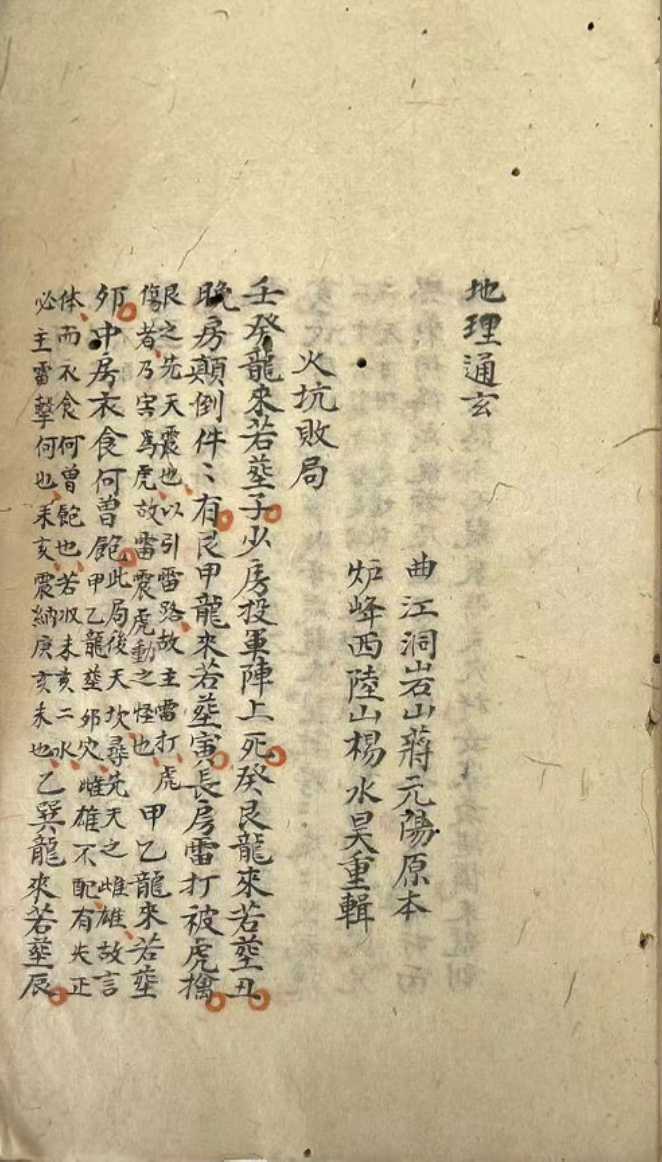 地理通玄
曲江洞岩山蔣元陽原本
炉峰西陸山楊水昊重輯
火坑敗局
壬癸龍來若塟子少房投軍陣上死癸艮龍來若塟丑
晩房顛倒件〻有艮甲龍來若塟寅長房雷打被虎擒
艮之先天震也以引雷路故主雷打虎
傷者乃寅爲虎故雷震虎動之怪也
甲乙龍來若塟
夘中房衣食何曽飽
此局後天坎尋先天之雌雄故言
甲乙龍塟夘穴雌雄不配有失正
体而不食何曽飽也若収未亥二水
必主雷擊何也未亥震納庚亥未也
乙巽龍來若塟辰